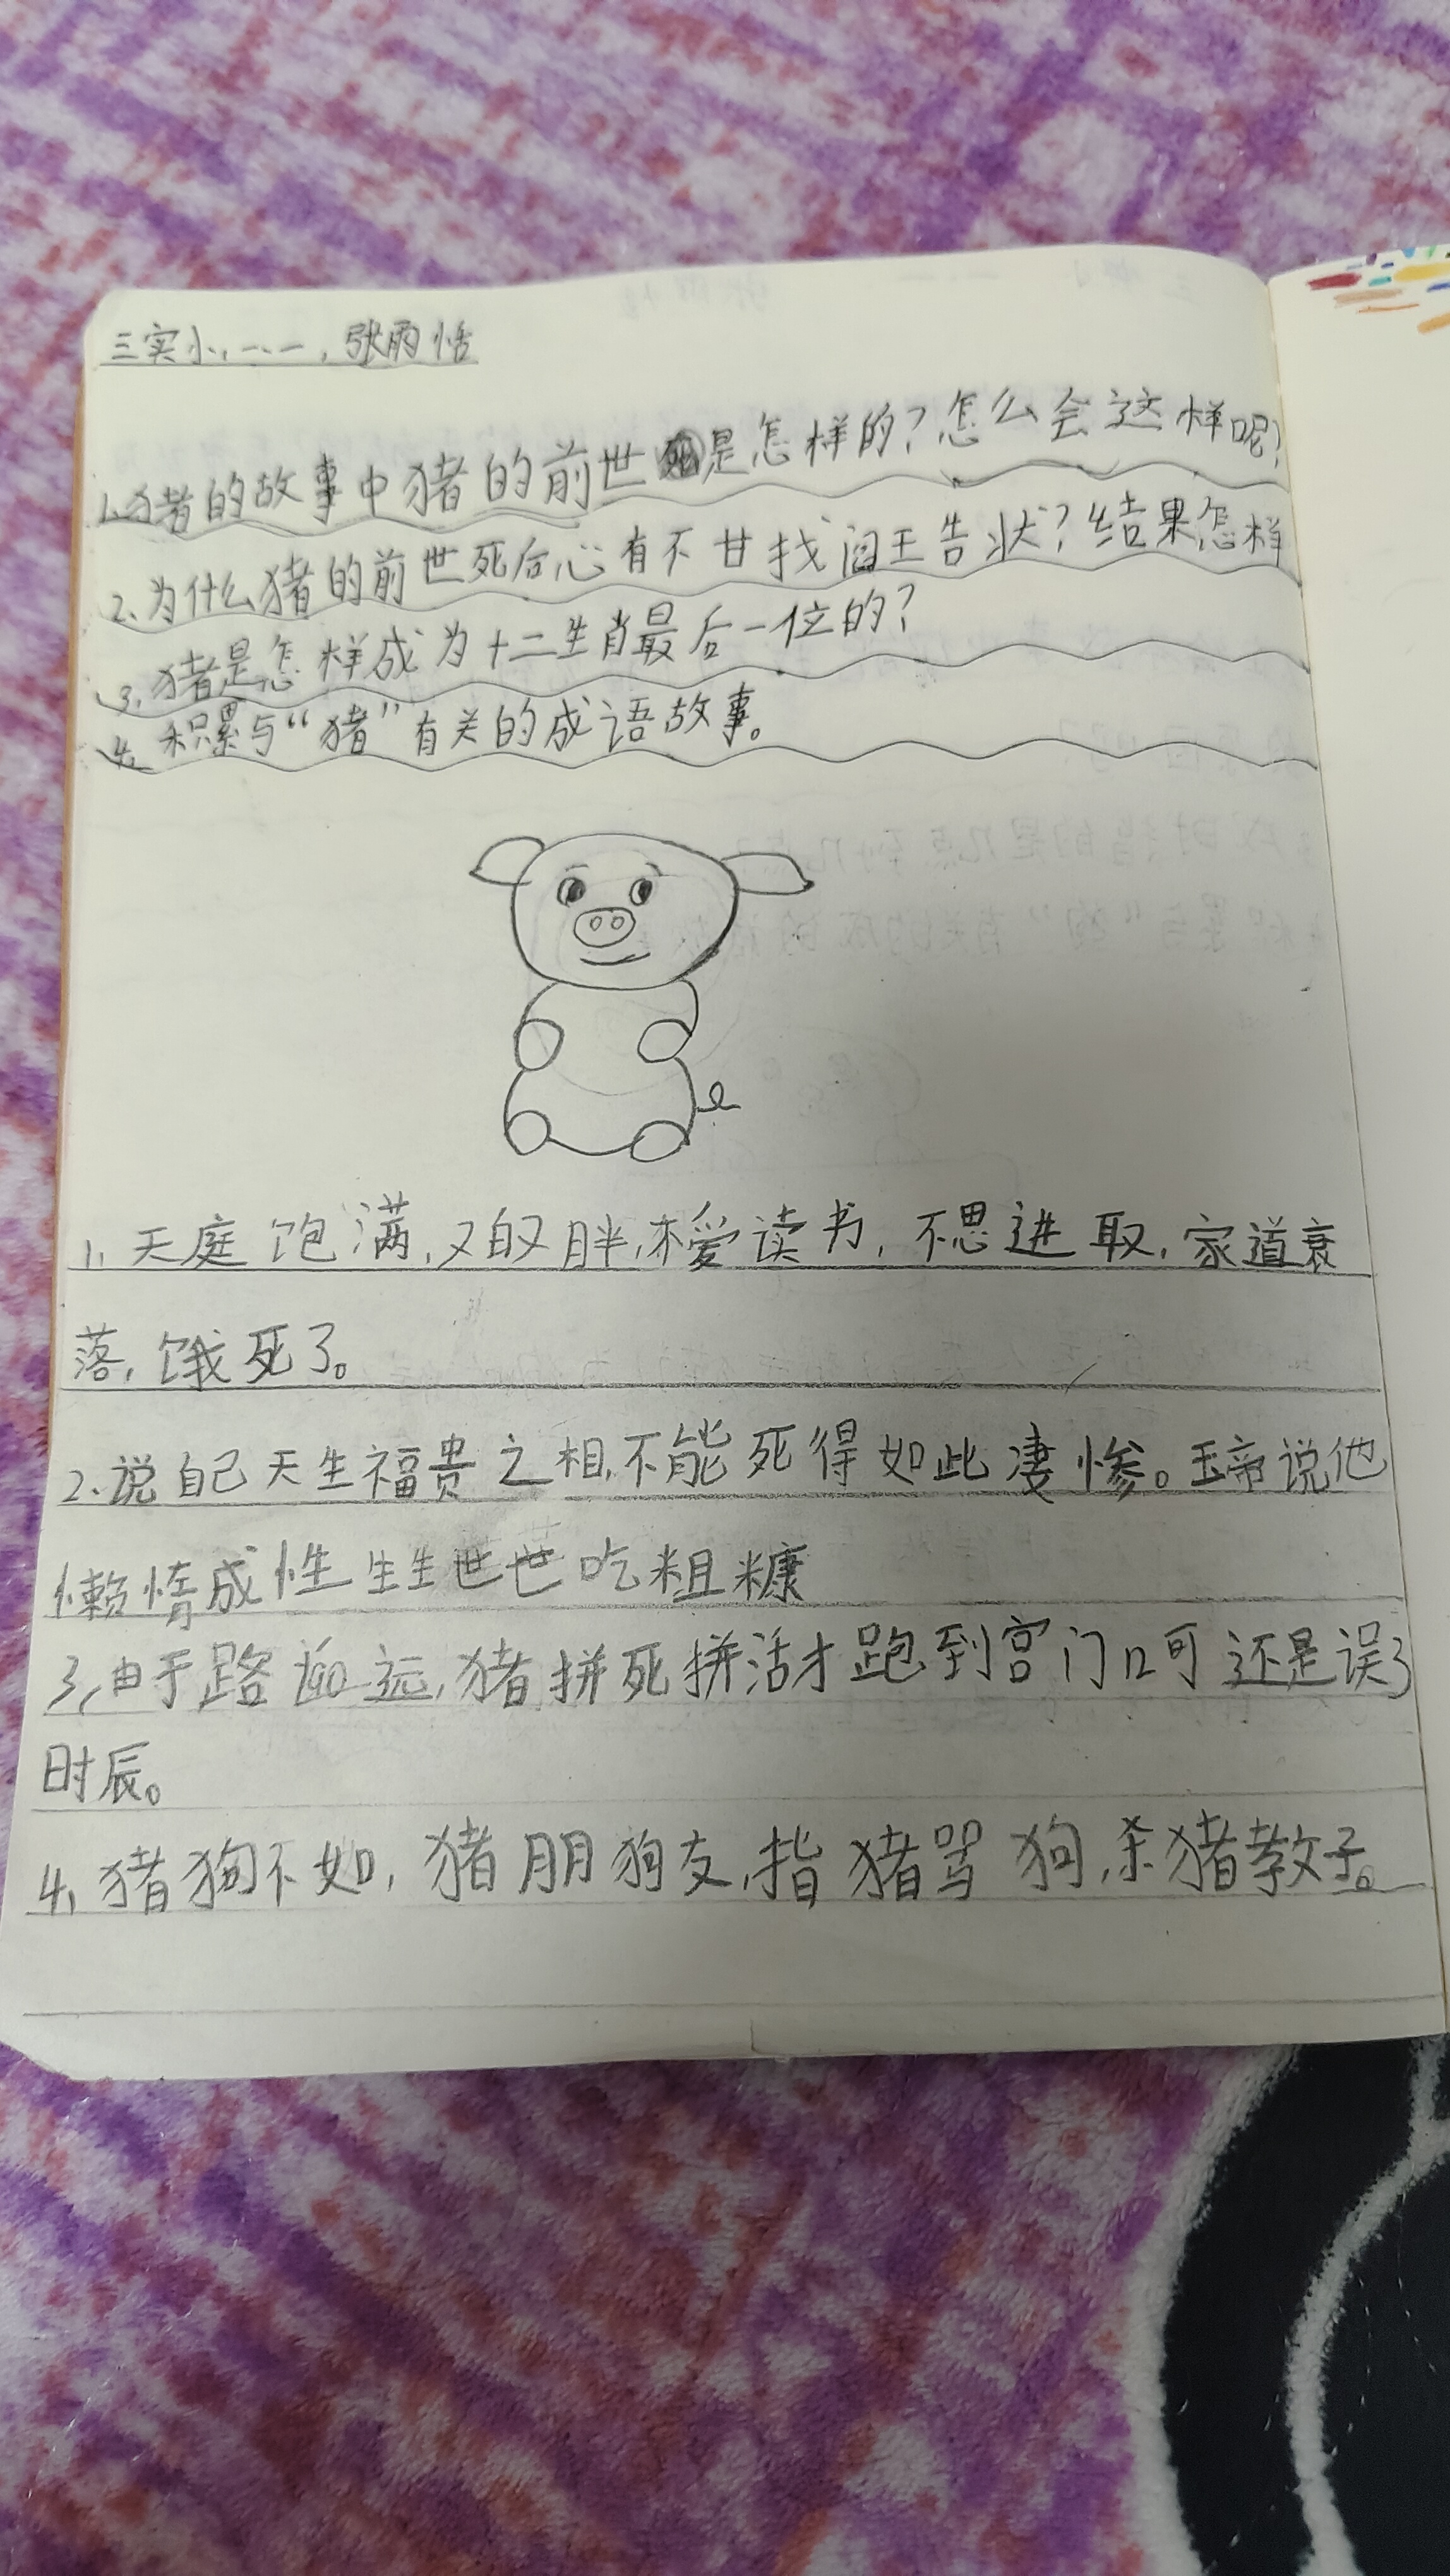 三实小,一.一,张雨恬
1.猪的故事中猪的前世是怎样的?怎么会这样呢?
2.为什么猪的前世死后心有不甘找阎王告状?结果怎样
3.猪是怎样成为十二生肖最后一位的?
4.积累与“猪”有关的成语故事。
1.天庭饱满,又白又胖,不爱读书,不思进取,家道衰
落,饿死了。
2.说自己天生福贵之相,不能死得如此凄惨。玉帝说他
懒惰成性生生世世吃粗糠
3,由于路遥远,猪拼死拼活才跑到宫门口可还是误了
时辰。
4,猪狗不如,猪朋狗友,指猪骂狗,杀猪教子。